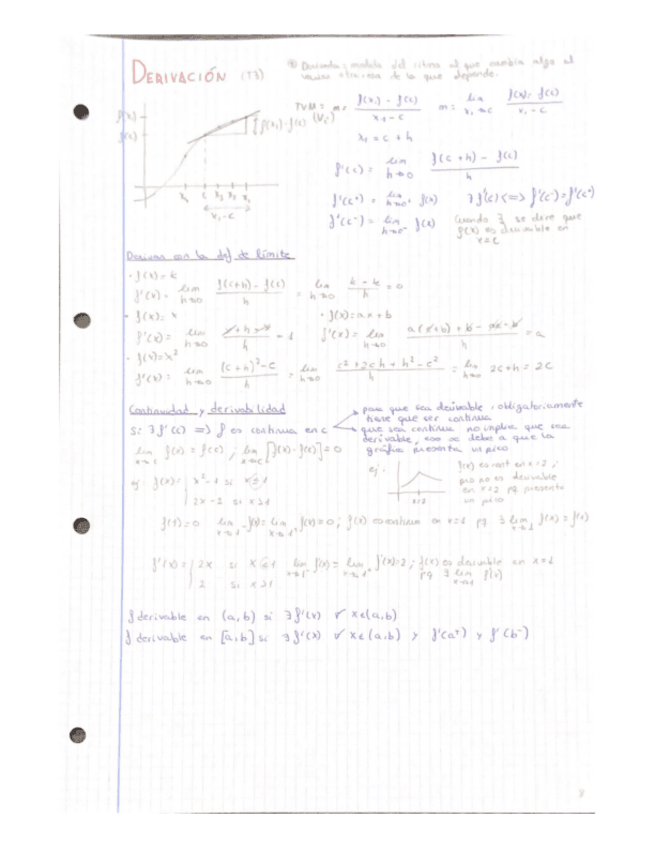 DERIVACIÓN (T3)
⊛ Derivada: medida del ritmo al que cambia algo al
variar otra cosa de la que depende.
TVM = m = (f(x₁) - f(c)) / (x₁ - c)    m = lim x₁→c (f(x₁) - f(c)) / (x₁ - c)
x₁ = c + h
f'(c) = lim h→0 (f(c + h) - f(c)) / h
f'(c⁺) = lim h→0⁺ f(x)    ∃ f'(c) <=> f'(c⁻) = f'(c⁺)
f'(c⁻) = lim h→0⁻ f(x)    Cuando ∃, se dice que
f(x) es derivable en
x = c
f(x₁)
f(c)
f(x₁) - f(c)
x₁ - c
Derivar con la def de límite
· f(x) = k
f'(x) = lim h→0 (f(c+h) - f(c)) / h = lim h→0 (k - k) / h = 0
· f(x) = x    · f(x) = ax + b
f'(x) = lim h→0 (x + h - x) / h = 1
· f(x) = x²
f'(x) = lim h→0 ((c + h)² - c) / h = lim h→0 (c² + 2ch + h² - c²) / h = lim h→0 2c + h = 2c
Continuidad y derivabilidad
Si ∃ f'(c) => f es continua en c
para que sea derivable, obligatoriamente
tiene que ser continua
que sea continua no implica que sea
derivable, eso se debe a que la
gráfica presenta un pico
lim x→c f(x) = f(c) ; lim x→c [f(x) - f(c)] = 0
ej: f(x) = { x² - 1 si x ≤ 1
2x - 2 si x > 1
ej:
x = 2
f(x) es cont en x = 2,
pero no es derivable
en x = 2 pq presenta
un pico
f(1) = 0    lim x→1⁻ f(x) = lim x→1⁺ f(x) = 0 ; f(x) es continua en x = 1 pq ∃ lim x→1 f(x) = f(x)
f'(x) = { 2x si x ≤ 1    lim x→1⁻ f'(x) = lim x→1⁺ f'(x) = 2 ; f(x) es derivable en x = 1
2 si x > 1    pq ∃ lim x→1 f(x)
f derivable en (a, b) si ∃ f'(x) ∀ x ∈ (a, b)
f derivable en [a, b] si ∃ f'(x) ∀ x ∈ (a, b) y f'(a⁺) y f'(b⁻)